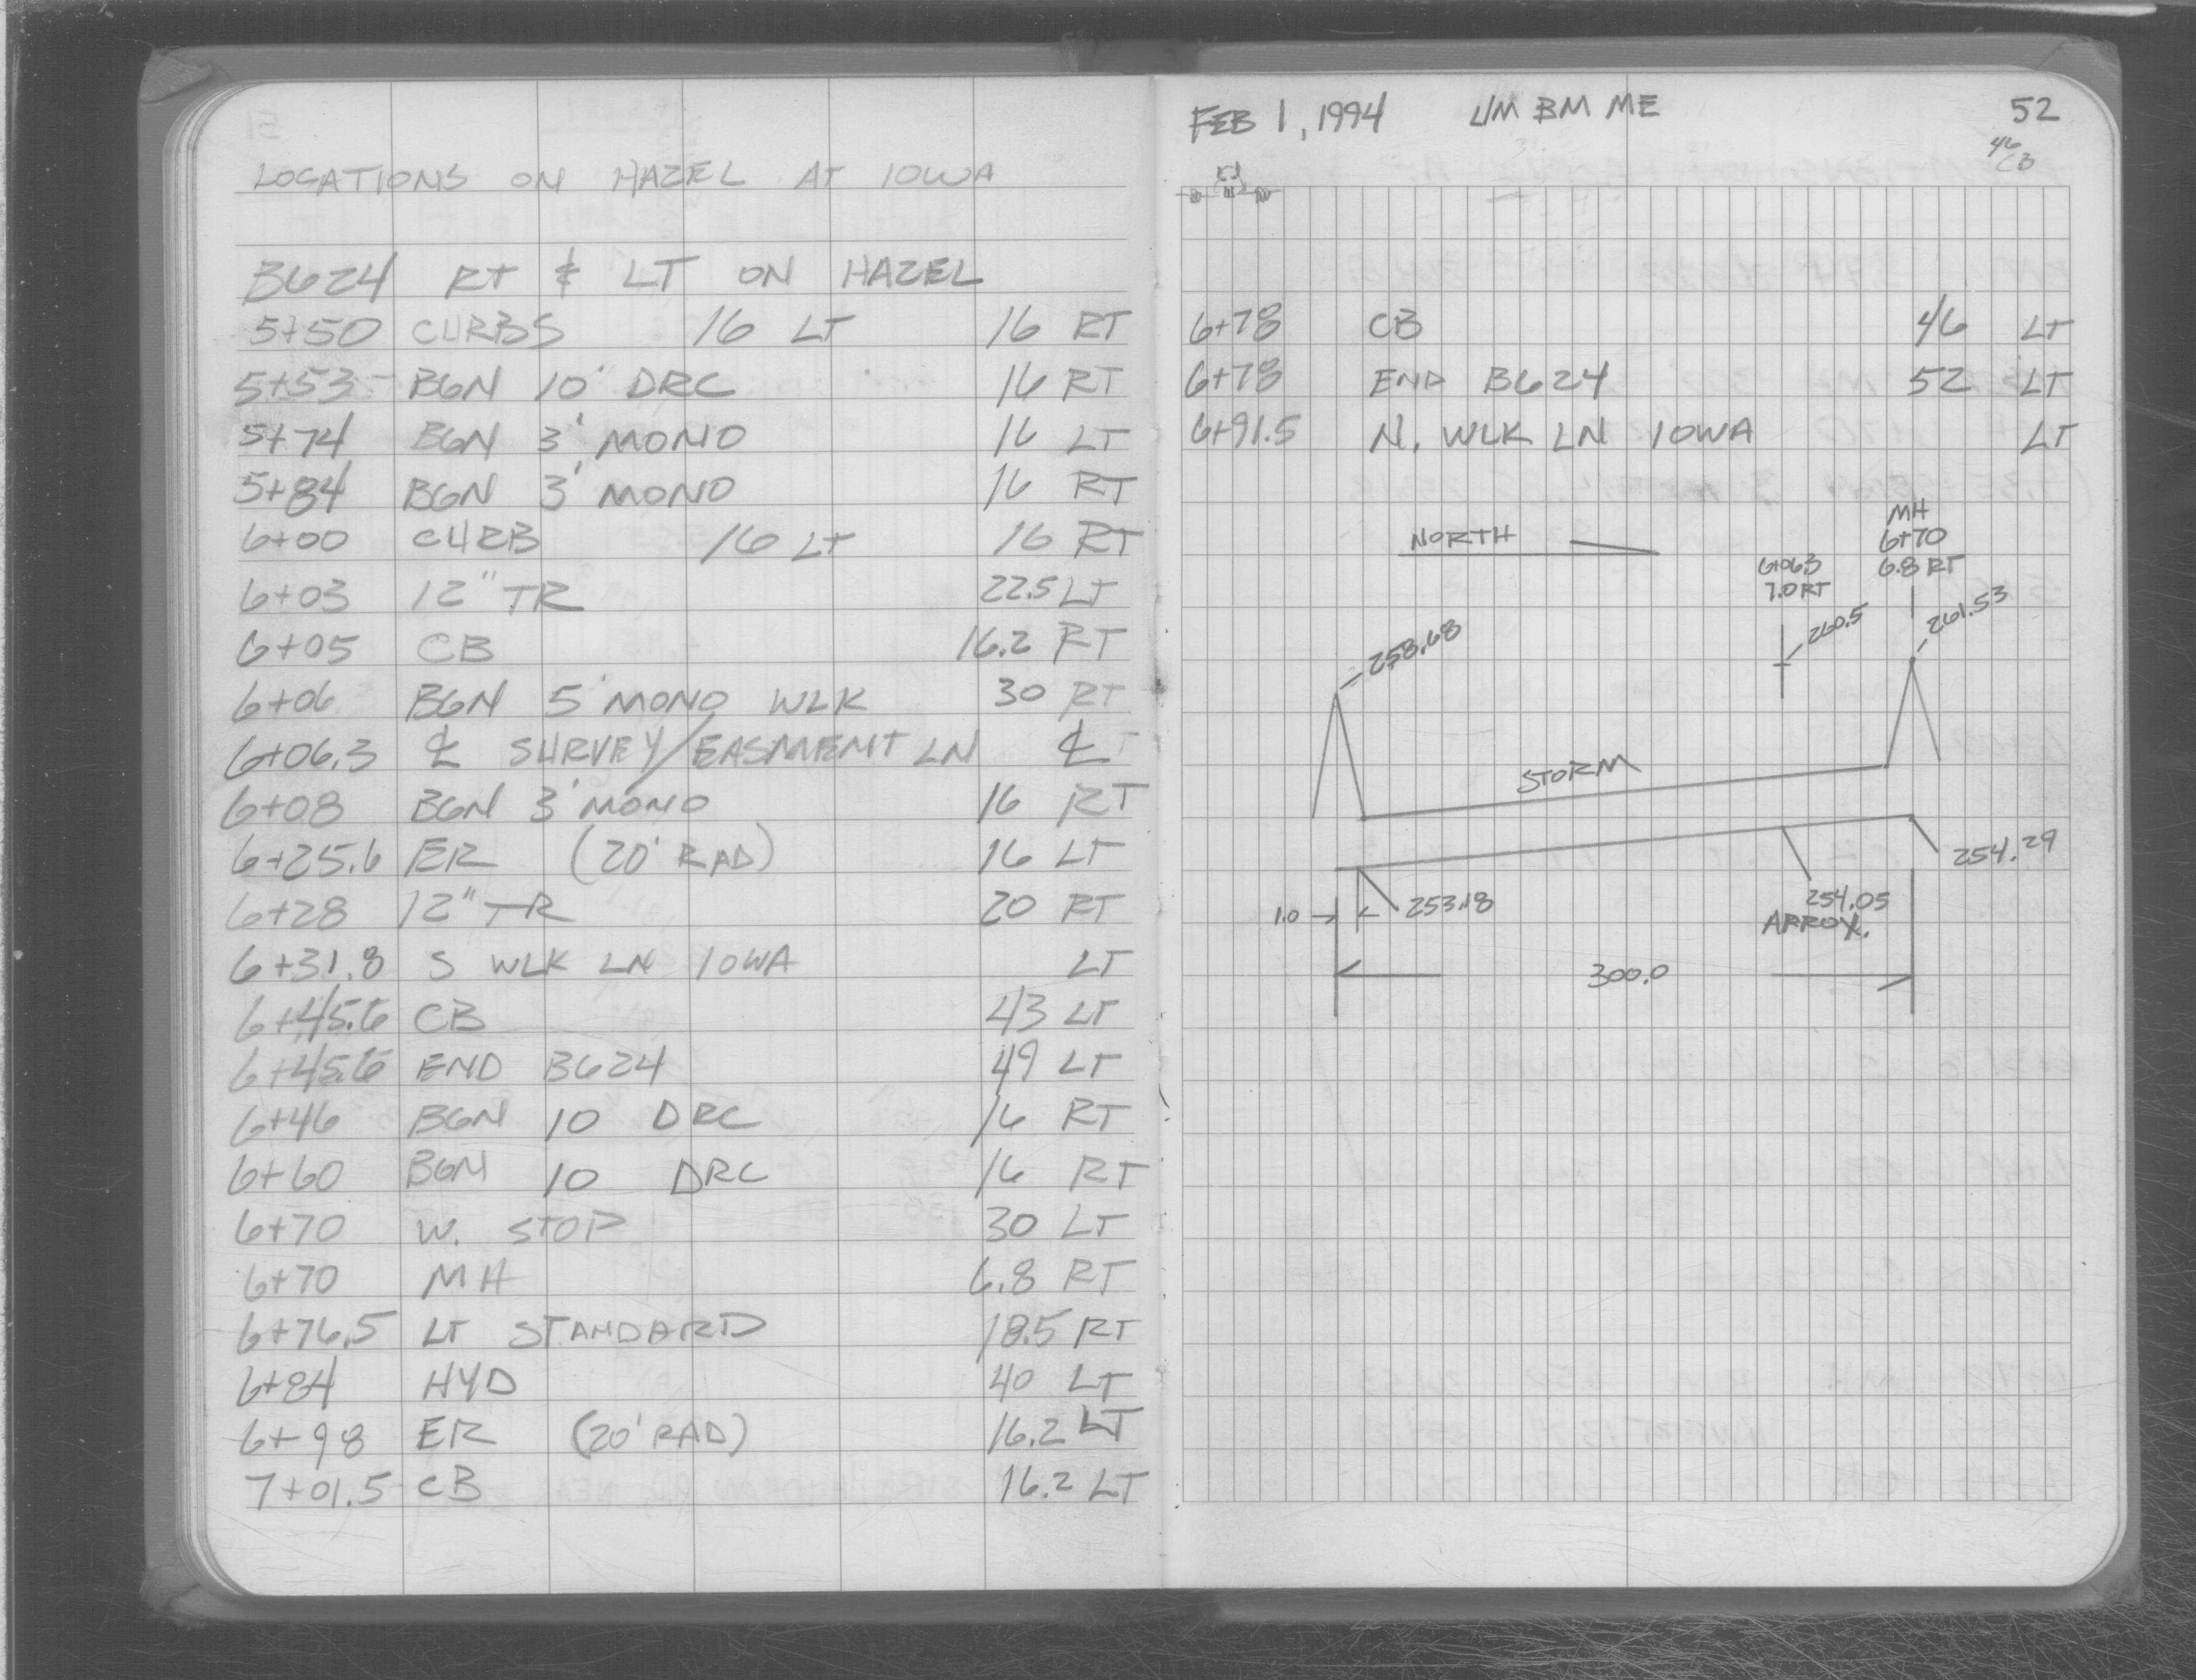 LOCATIONS ON HAZEL AT IOWA
B624 RT & LT ON HAZEL
5+50 CURBS 16 LT 16 RT
5+53 BGN 10' DRC 16 RT
5+74 BGN 3' MONO 16 LT
5+84 BGN 3' MONO 16 RT
6+00 CURB 16 LT 16 RT
6+03 12" TR 22.5 LT
6+05 CB 16.2 RT
6+06 BGN 5' MONO WLK 30 RT
6+06.3 ℄ SURVEY/EASMEMT LN ℄
6+08 BGN 3' MONO 16 RT
6+25.6 ER (20' RAD) 16 LT
6+28 12" TR 20 RT
6+31.8 S WLK LN IOWA LT
6+45.6 CB 43 LT
6+45.6 END B624 49 LT
6+46 BGN 10 DRC 16 RT
6+60 BGN 10 DRC 16 RT
6+70 W. STOP 30 LT
6+70 MH 6.8 RT
6+76.5 LT STANDARD 18.5 RT
6+84 HYD 40 LT
6+98 ER (20' RAD) 16.2 LT
7+01.5 CB 16.2 LT
FEB 1, 1994 BM ME 52
46
CB
6+78 CB 46 LT
6+78 END B624 52 LT
6+91.5 N. WLK LN IOWA LT
NORTH
MH
6+70
6.8 RT
6+06.3
7.0 RT
258.68
260.5
261.53
STORM
254.29
1.0
253.18
254.05
ARROX.
300.0